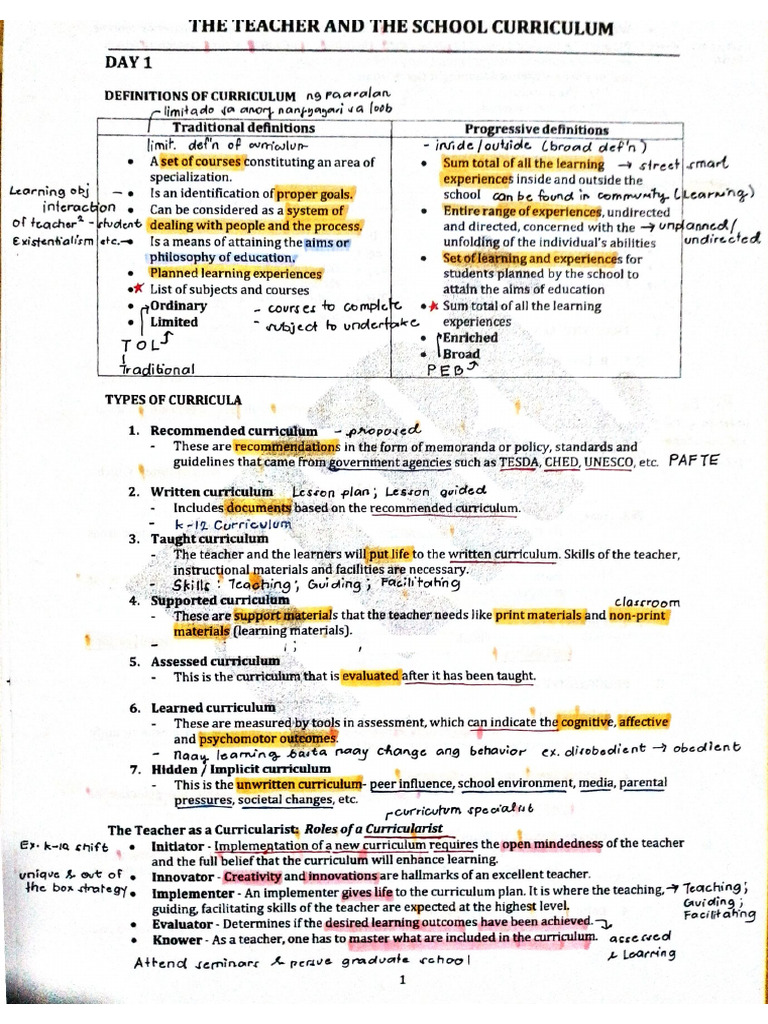 THE TEACHER AND THE SCHOOL CURRICULUM
DAY 1
DEFINITIONS OF CURRICULUM ng paaralan
limitado sa anong nangyayari sa loob
Traditional definitions
limit. def'n of curriculum
• A set of courses constituting an area of
specialization.
Learning obj – • Is an identification of proper goals.
interaction • Can be considered as a system of
of teacher² - student dealing with people and the process.
Existentialism etc. • Is a means of attaining the aims or
philosophy of education.
• Planned learning experiences
•★ List of subjects and courses
• Ordinary - courses to complete
• Limited - subject to undertake
TOL
Traditional
Progressive definitions
- inside/outside (broad def'n)
• Sum total of all the learning → street smart
experiences inside and outside the
school can be found in community (Learning)
• Entire range of experiences, undirected
and directed, concerned with the → unplanned/
unfolding of the individual's abilities undirected
• Set of learning and experiences for
students planned by the school to
attain the aims of education
•★ Sum total of all the learning
experiences
• Enriched
• Broad
PEB
TYPES OF CURRICULA
1. Recommended curriculum - proposed
- These are recommendations in the form of memoranda or policy, standards and
guidelines that came from government agencies such as TESDA, CHED, UNESCO, etc. PAFTE
2. Written curriculum Lesson plan; Lesson guided
- Includes documents based on the recommended curriculum.
- k-12 Curriculum
3. Taught curriculum
- The teacher and the learners will put life to the written curriculum. Skills of the teacher,
instructional materials and facilities are necessary.
- Skills: Teaching; Guiding; Facilitating
4. Supported curriculum classroom
- These are support materials that the teacher needs like print materials and non-print
materials (learning materials).
5. Assessed curriculum
- This is the curriculum that is evaluated after it has been taught.
6. Learned curriculum
- These are measured by tools in assessment, which can indicate the cognitive, affective
and psychomotor outcomes.
- Naay learning basta naay change ang behavior ex. disobedient → obedient
7. Hidden / Implicit curriculum
- This is the unwritten curriculum- peer influence, school environment, media, parental
pressures, societal changes, etc.
curriculum specialist
The Teacher as a Curricularist: Roles of a Curricularist
Ex. k-12 shift • Initiator - Implementation of a new curriculum requires the open mindedness of the teacher
and the full belief that the curriculum will enhance learning.
unique & out of • Innovator - Creativity and innovations are hallmarks of an excellent teacher.
the box strategy • Implementer - An implementer gives life to the curriculum plan. It is where the teaching, → Teaching;
guiding, facilitating skills of the teacher are expected at the highest level. Guiding;
Facilitating
• Evaluator - Determines if the desired learning outcomes have been achieved.
• Knower - As a teacher, one has to master what are included in the curriculum. assessed
& Learning
Attend seminars & persue graduate school
1